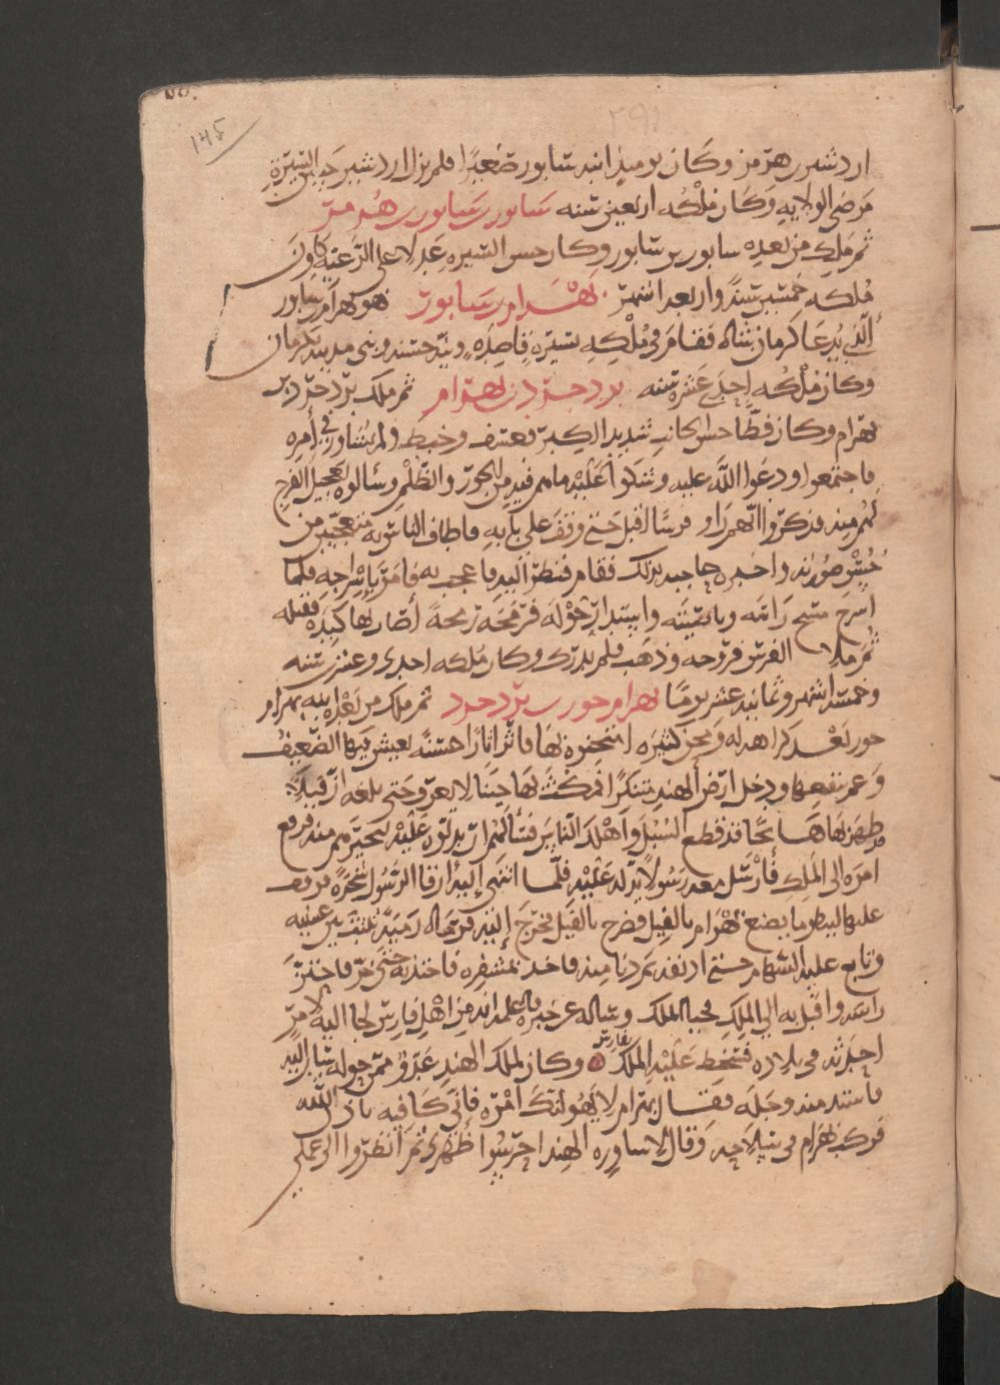 ١٤٥
اردشير بن هرمز وكان يوميذ ابنه سابور صغيرا فلم يزل اردشير حسن السيرة
مرضى الولايه وكان ملكه اربعين سنه سابور بن سابور بن هرمز
ثم ملك من بعده سابور بن سابور وكان حسن السيره عدلا على الرعيه وكان
ملكه خمسين سنة واربعه اشهر بهرام بن سابور فهو بهرام بن سابور
الذي يدعا كرمان شاه فقام في ملكه بسيرة قاصده ونية حسنه وبنى مدينة كرمان
وكان ملكه احدى عشرة سنه يزدجرد بن بهرام ثم ملك يزدجرد بن
بهرام وكان فظا خشن الجانب شديد الكبر فعسف وخبط ولم يشاور في أمره
فاجتمعوا ودعوا الله عليه وشكوا عليه ما هم فيه من الجور والظلم وسألوه تعجيل الفرج
لهم منه فذكروا انهم راوا فرسا اقبل حتى وقف على بابه فاطاف الناس به متعجبين من
حسن صورته واخبره حاجبه بذلك فقام فنظر اليه فاعجب به فامر باسراجه فلما
اسرج مسح راسه وناصيته واستدار حوله فرمحه رمحة أصاب بها كبده فقتله
ثم ملا الفرس فروجه وذهب فلم يدرك وكان ملكه احدى وعشرين سنه
وخمسة اشهر وثمانيه عشر يوما بهرام جور بن يزدجرد ثم ملك من بعده ابنه بهرام
جور بعد كراهه له ومحن كثيره امتحنوه بها فاثر اثارا حسنة يعيش فيها الضعيف
وعم نفعها ودخل ارض الهند متنكرا فمكث بها حينا لا يعرف حتى بلغه ان فيلا
قد ظهر بها هائجا قد قطع السبل واهلك الناس فسألهم ان يدلوه عليه ليحيرهم منه فرفع
امره الى الملك فأرسل معه رسولا يدله عليه فلما انتهى إليه ارقا الرسول شجرة فوقف
عليها لينظر ما يصنع بهرام بالفيل فصرخ بالفيل فخرج إليه فرماه رمية ثبتت بين عينيه
وتابع عليه السهام حتى انفذه ثم دنا منه فاخذ بمشفره فاجتذبه حتى خر فاحتز
راسه واقبل به الى الملك فحباه الملك وساله عن خبره فاعلمه انه من اهل فارس لجا اليه لامر
احدثه في بلاده فسخط عليه الملك فارس وكان لملك الهند عدو ممن حوله سار اليه
فاشتد منه وجله فقال بهرام لا يهولنك امره فاني كافيه باذن الله
فركب بهرام في سلاحه وقال لاساوره الهند احرسوا ظهري ثم انظروا الى عملي